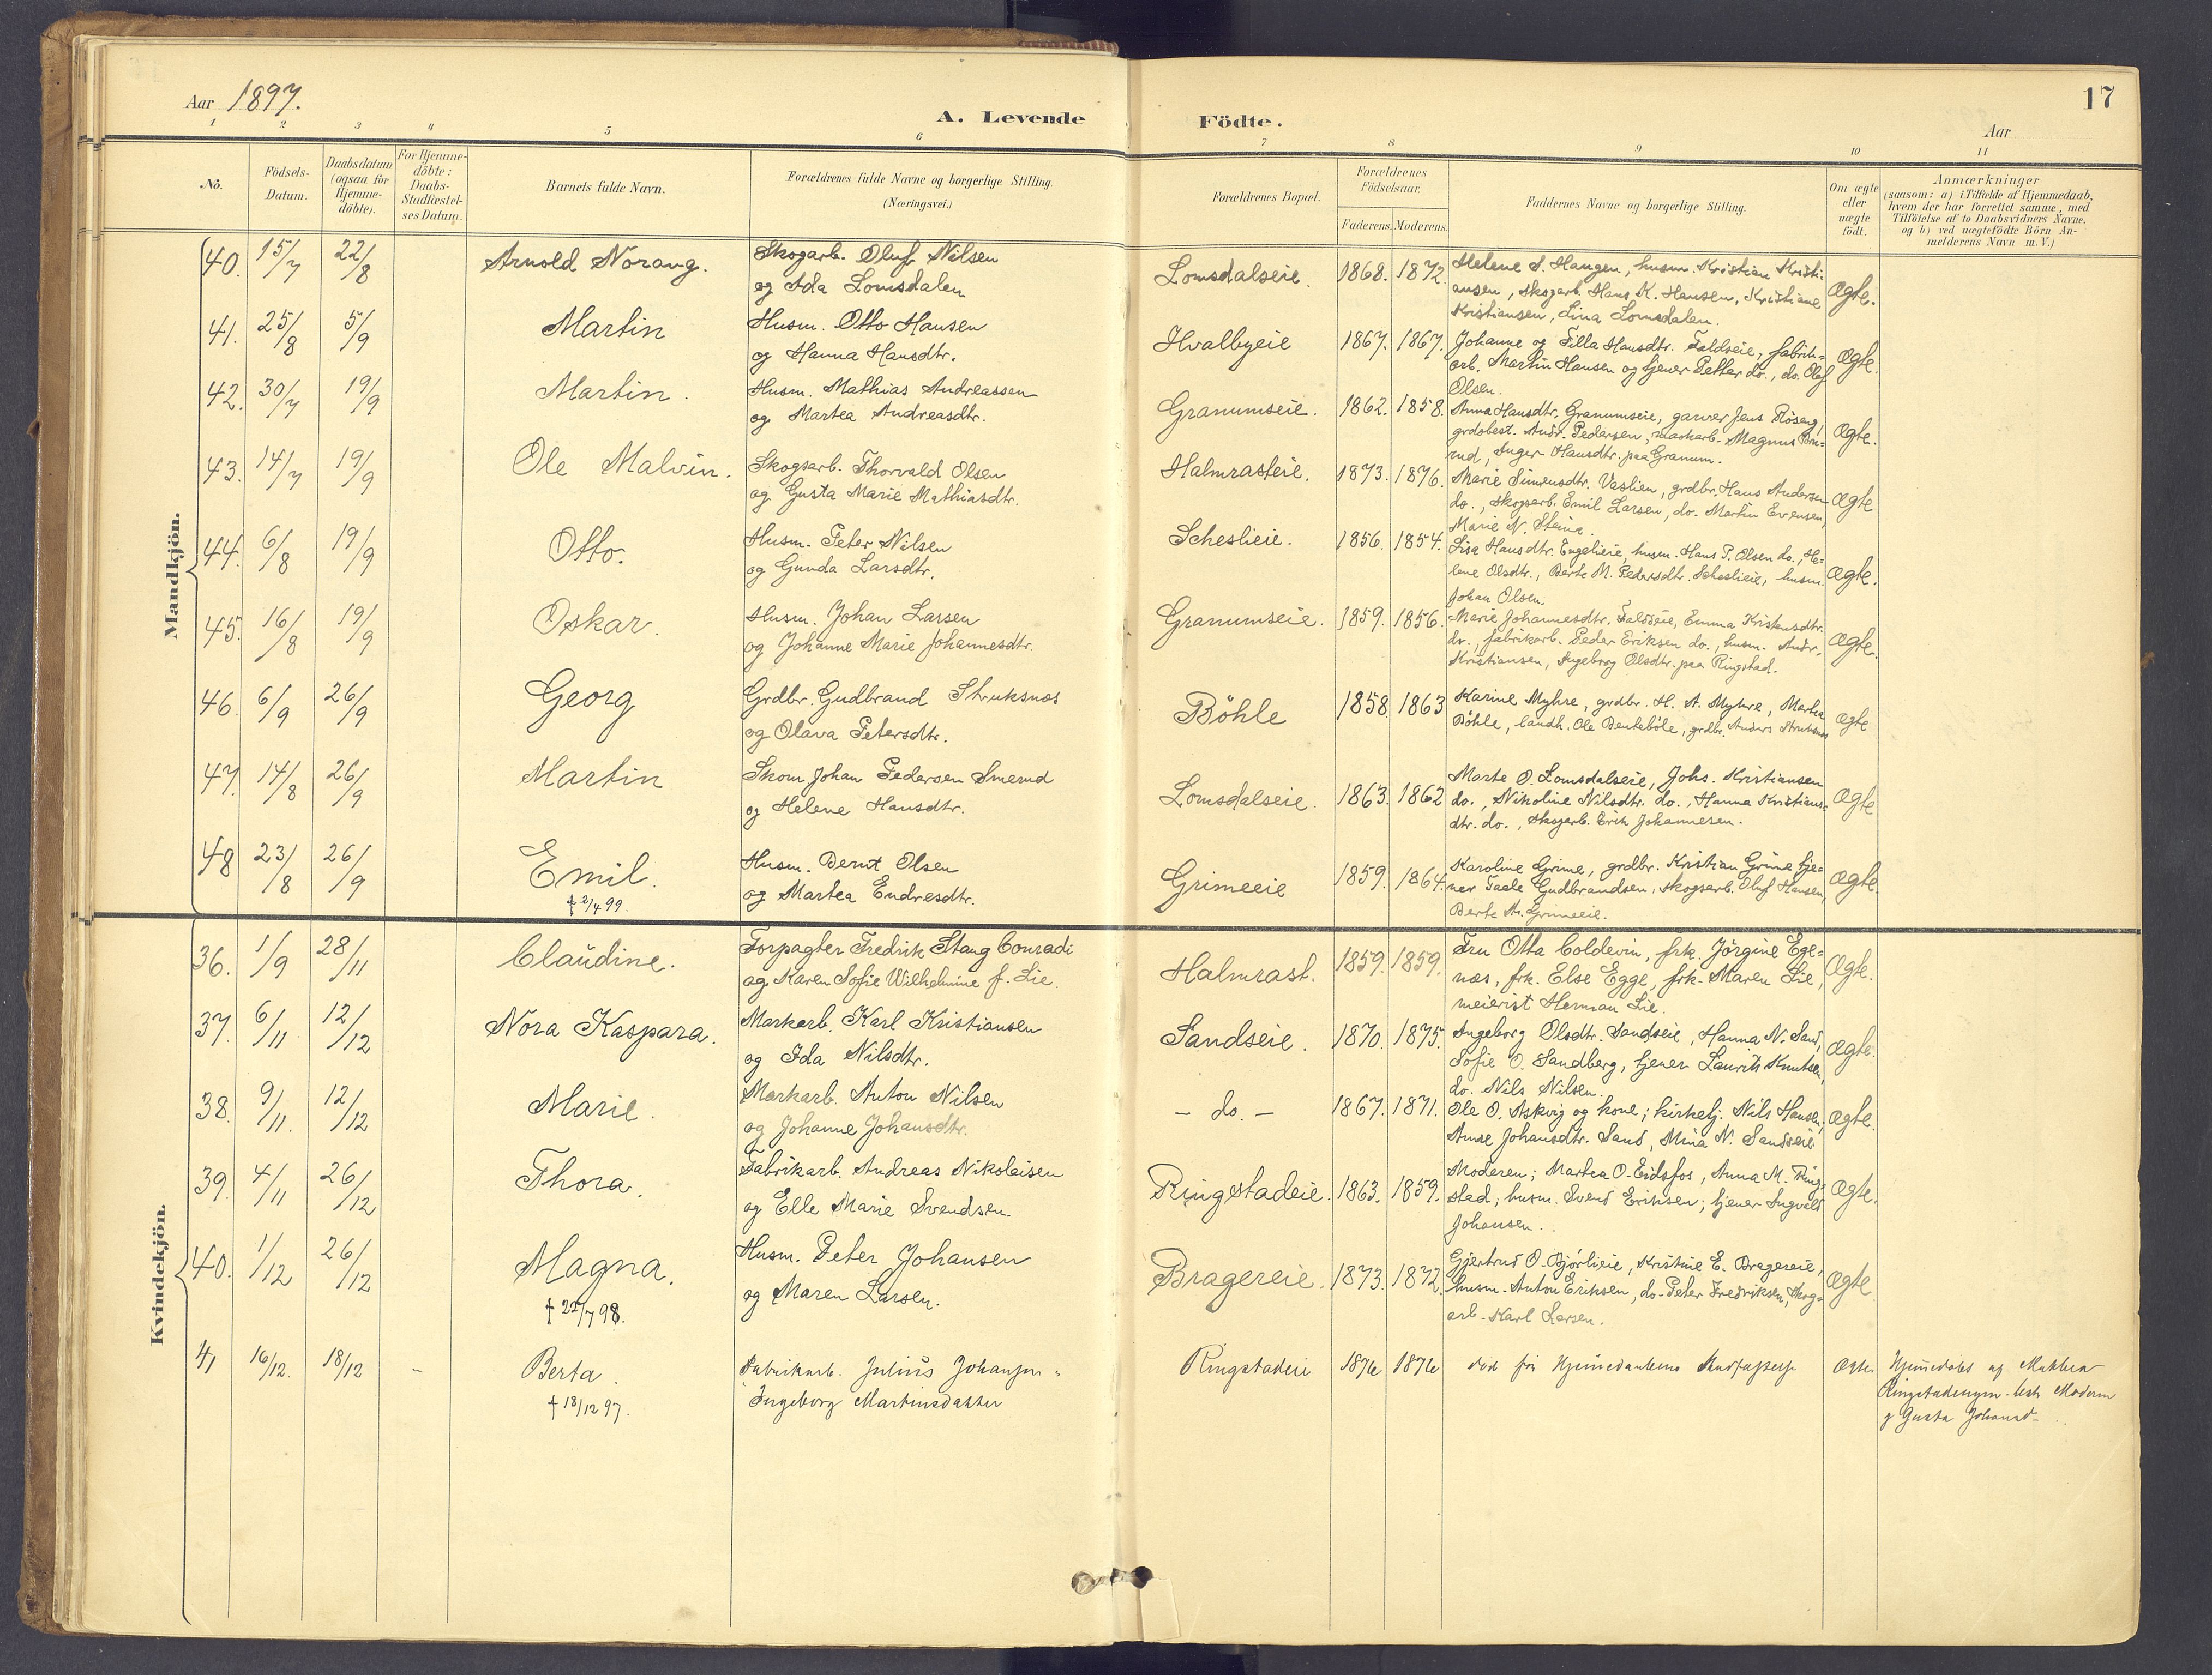 Aar 1897.
A. Levende
Födte.
17
Aar
1 2 3 4 5 6 7 8 9 10 11
No.
Födsels-
Datum.
Daabsdatum
(ogsaa for
Hjemme-
döbte).
For Hjemme-
döbte:
Daabs-
Stadfæstel-
ses Datum.
Barnets fulde Navn.
Forældrenes fulde Navne og borgerlige Stilling.
(Næringsvei.)
Forældrenes Bopæl.
Forældrenes
Födselsaar.
Faderens. Moderens.
Faddernes Navne og borgerlige Stilling.
Om ægte
eller
uægte
födt.
Anmærkninger
(saasom: a) i Tilfælde af Hjemmedaab,
hvem der har forrettet samme, med
Tilföielse af to Daabsvidners Navne.
og b) ved uægtefödte Börn An-
melderens Navn m. V.)
Mandkjön.
40. 15/7 22/8 Arnold Norang. Skogarb. Oluf Nilsen
og Ida Lomsdalen
Lomsdalseie. 1868. 1872. Helene S. Haugen, husm. Kristian Kristi-
ansen, skogarb. Hans K. Hansen, Kristiane
Kristiansen, Lina Lomsdalen.
Ægte.
41. 25/8 5/9 Martin Husm. Otto Hansen
og Hanna Hansdtr.
Hvalbyeie 1867. 1867. Johanne og Tilla Hansdtr. Faldseie, fabrik-
arb. Martin Hansen og tjener Petter do., do. Olaf
Olsen.
Ægte.
42. 30/7 19/9 Martin. Husm. Mathias Andreassen
og Martea Andreasdtr.
Granumseie. 1862. 1858. Anna Hansdtr. Granumseie, garver Jens Röseng,
grdbest. Andr. Pedersen, markarb. Magnus
rud, Inger Hansdtr. paa Granum.
Ægte.
43. 14/7 19/9 Ole Malvin. Skogsarb. Thorvald Olsen
og Gusta Marie Mathiasdtr.
Halmrasteie. 1873. 1876. Marie Simensdtr. Vaslien, grdbr. Hans Andersen
do., skogsarb. Emil Larsen, do. Martin Evensen,
Marie N. Steina.
Ægte
44. 6/8 19/9 Otto. Husm. Peter Nilsen
og Gunda Larsdtr.
Scheslieie. 1856. 1854. Lisa Hansdtr. Engelieie, husm. Hans P. Olsen do., He-
lene Olsdtr., Berte M. Pedersdtr. Scheslieie, husm.
Johan Olsen.
Ægte.
45. 16/8 19/9 Oskar. Husm. Johan Larsen
og Johanne Marie Johannesdtr.
Granumseie. 1859. 1856. Marie Johannesdtr. Faldseie, Emma Kristensdtr.
do., fabrikarb. Peder Eriksen do., husm. Andr.
Kristiansen, Ingebrog Olsdtr. paa Ringstad.
Ægte.
46. 6/9 26/9 Georg Grdbr. Gudbrand Struksnæs
og Olava Petersdtr.
Böhle 1858 1863 Karine Myhre, grdbr. H. A. Myhre, Martea
Böhle, landh. Ole Benteböle, grdbr. Anders Struksnæs
ægte
47. 14/8 26/9 Martin Skom. Johan Pedersen Smerud
og Helene Hansdtr.
Lomsdalseie. 1863. 1862 Marte O. Lomsdalseie, Johs. Kristiansen
do., Nikoline Nilsdtr. do., Hanna Kristians-
dtr. do., skogarb. Erik Johannesen.
Ægte
48 23/8 26/9 Emil.
† 2/4 99.
Husm. Bernt Olsen
og Martea Endresdtr.
Grimeeie 1859. 1864. Karoline Grime, grdbr. Kristian Grime tje-
ner Taale Gudbrandsen, skogsarb. Oluf Hansen,
Berte A. Grimeeie.
Ægte.
Kvindekjön.
36. 1/9 28/11 Claudine. Forpagter Fredrik Stang Conradi
og Karen Sofie Wilhelmine f. Lie.
Halmrast. 1859. 1859. Fru Otta Coldevin, frk. Jörgine Ege-
næs, frk. Else Egge, frk. Maren Lie,
meierist Herman Lie.
Ægte.
37. 6/11 12/12 Nora Kaspara. Markarb. Karl Kristiansen
og Ida Nilsdtr.
Sandseie. 1870. 1875. Ingeborg Olsdtr. Sandseie, Hanna N. Sand,
Sofie O. Sandberg, tjener Laurits Knutsen,
do. Nils Nilsen.
Ægte.
38. 9/11. 12/12 Marie. Markarb. Anton Nilsen
og Johanne Johansdtr.
- do. - 1867. 1871. Ole O. Askvig og kone; kirketj. Nils Hansen,
Anne Johansdtr. Sand, Mina N. Sandseie
Ægte.
39. 4/11 26/12 Thora. Fabrikarb. Andreas Nikolaisen
og Elle Marie Svendsen.
Ringstadeie. 1863. 1859. Moderen; Martea O. Eidsfos, Anna M. Ring-
stad; husm. Svend Eriksen; tjener Ingvald
Johansen.
Ægte.
40. 1/12 26/12 Magna.
† 22/7 98.
Husm. Peter Johansen
og Maren Larsen.
Bragereie. 1873. 1872. Gjertrud O. Bjørlieie, Kristine E. Bragereie,
husm. Anton Eriksen, do. Peter Fredriksen, skog-
arb. Karl Larsen.
Ægte
41 16/12. 18/12 - Berta.
† 18/12 97.
Fabrikarb. Julius Johansen
Ingeborg Martinsdatter
Ringstadeie 1876 1876 død før Hjemmedaabens Stadfæstelse Ægte. Hjemedöbt af Mathea
Ringstadengen. test. Moderen
og Gusta Johansd.